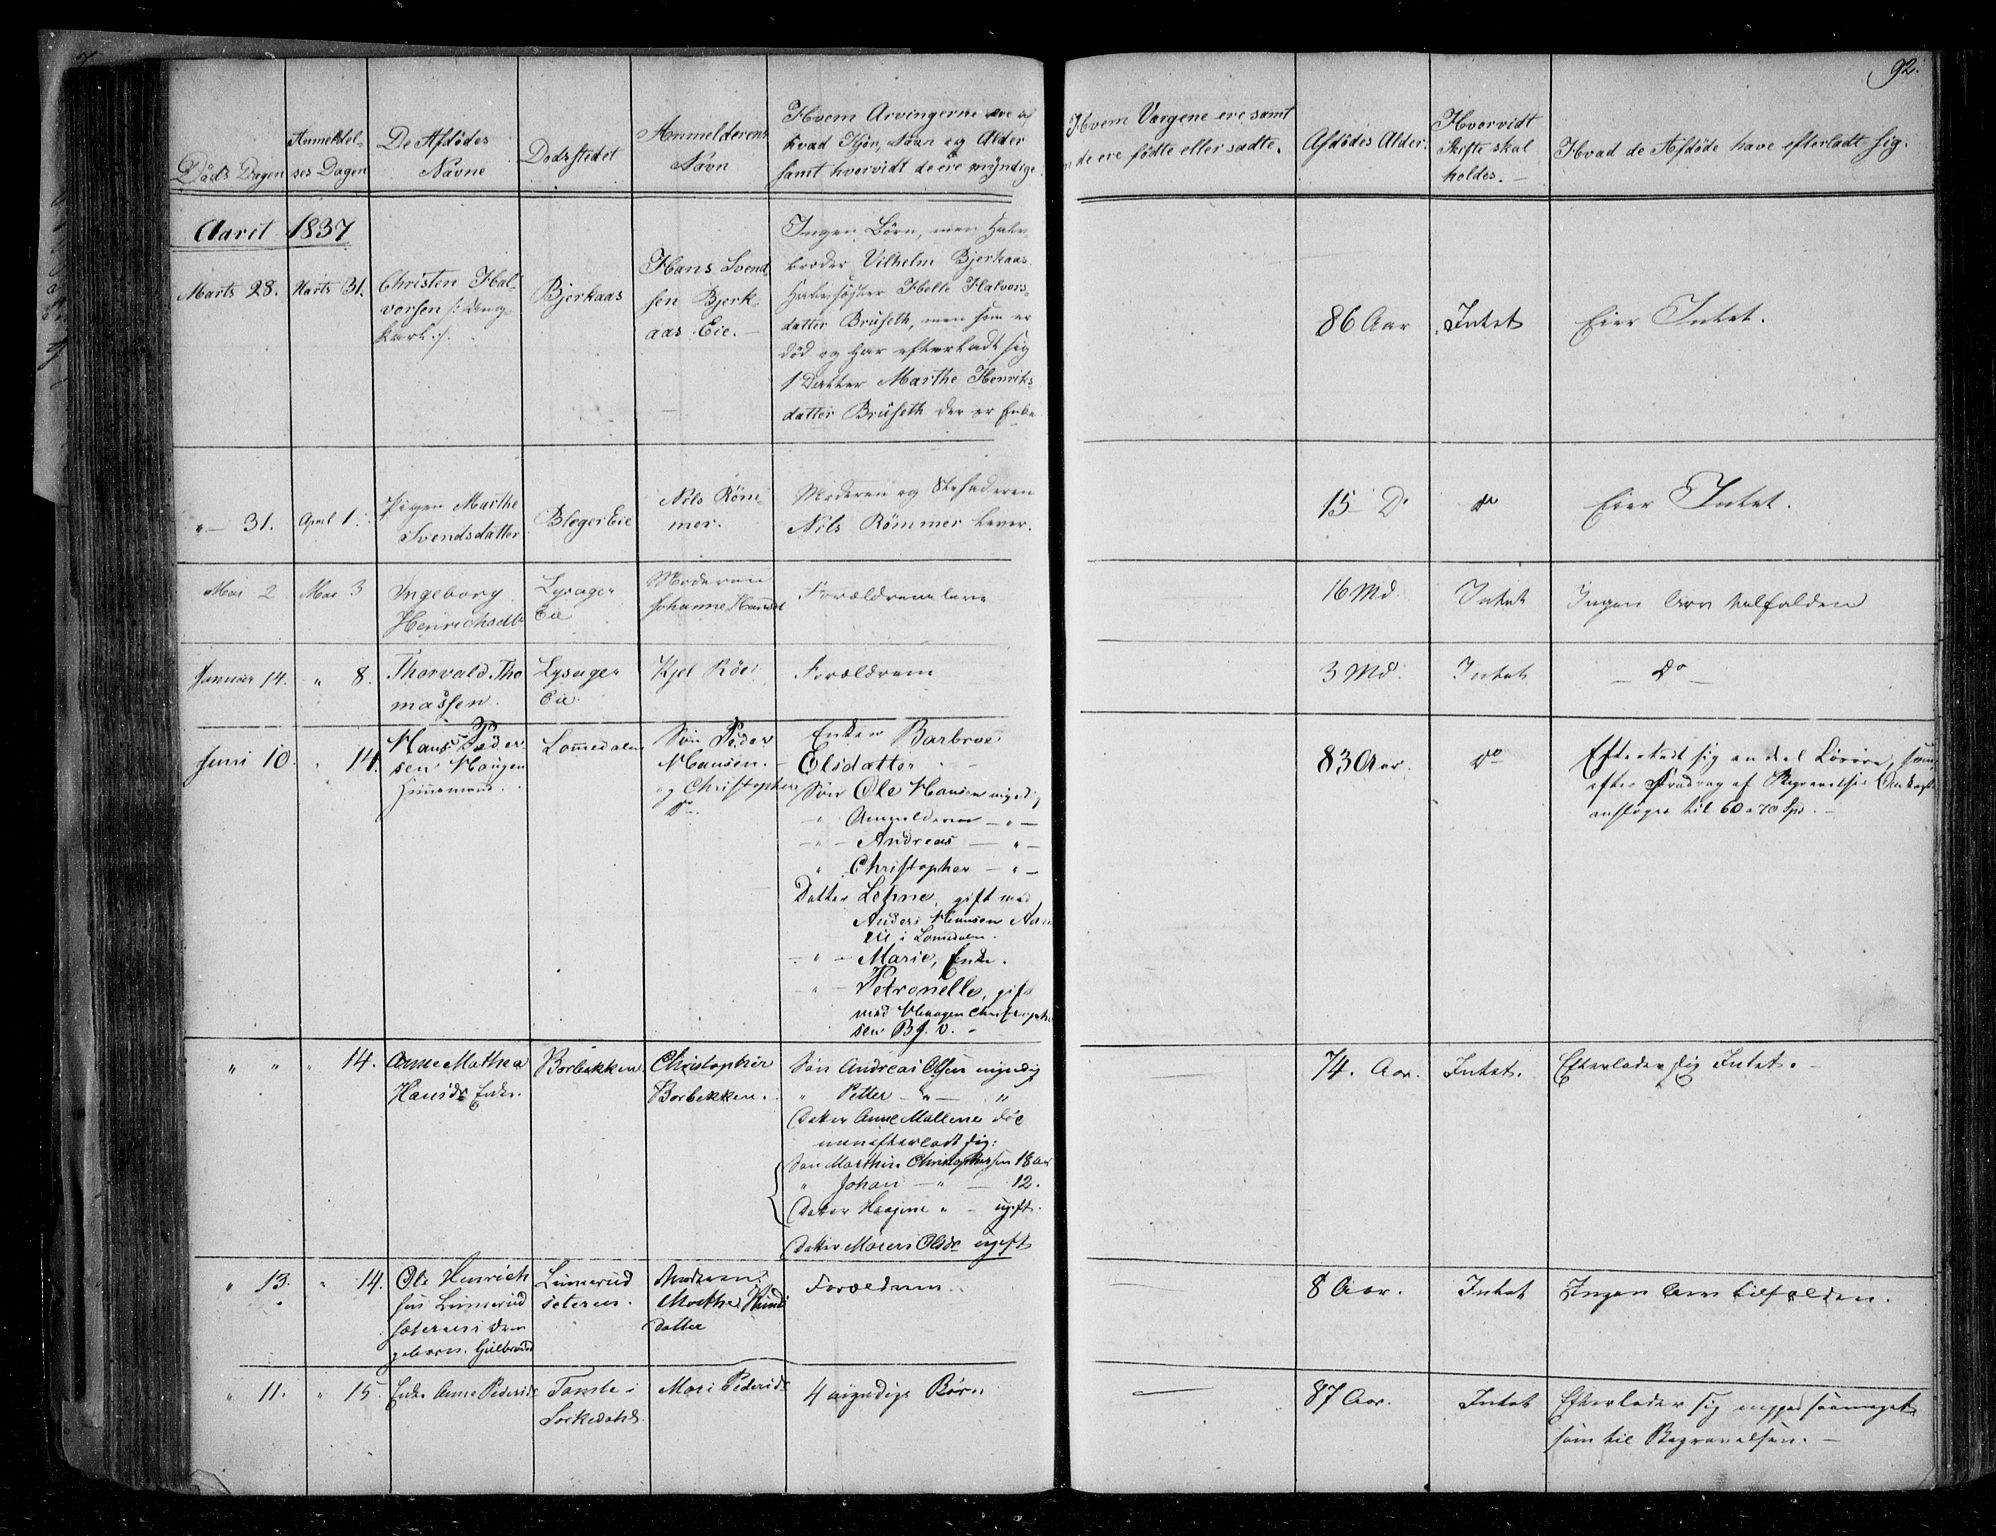 92.
Döds Dagen
Anmeldel-
ses Dagen
De Afdödes
Navne
Dodsstedet
Anmelderens
Navn
Hvem Arvingerne ere af
hvad Kjön, Navn og Alder
samt hvorvidt de ere myndige.
Hvem Værgene ere samt
de ere födte eller satte.
Afdödes Alder.
Hvorvidt
Skifte skal
holdes.
Hvad de Afdöde have efterladt sig.
Aaret 1837
Marts 28.
Marts 31.
Christen Hal-
vorsen
Bjerkaas
Hans Svend
sen Bjerk-
aas Eie.
Ingen Börn, men Halv-
broder Vilhelm Bjerkaas
Halvsöster Helle Halvors-
datter Bruseth, men som er
död og har efterladt sig
1 Datter Marthe Henriks-
datter Bruseth der er Enke
86 Aar
Intet
Eier Intet.
" 31.
April 1.
Pigen Marthe
Svendsdatter
Bleger Eie
Nils Röm-
mer.
Moderen og Stefaderen
Nils Römmer lever.
15 Do
do
Eier Intet.
Mai 2
Mai 3
Ingeborg
Henrichsdtr
Lysager
Eie
Moderen
Johanne
Forældrene leve
16 Md.
Intet
Ingen Arv tilfalden
Januar 14.
" 8.
Thorvald Tho
massen.
Lysager
Eie.
Kjel Röe
Forældrene
3 Md.
Intet
Do
Juni 10.
" 14.
Hans Peder
sen Haugen
Lommedalen
Sön Peder
Hansen.
og Christopher
Do
Enken Barbroe
Olsdatter
Sön Ole Hansen myndig
" Anmelderen "
" Andreas "
" Christopher "
Datter Lehne, gift med
Anders Hansen
Eie i Lomedalen.
" Marie, Enke.
" Petronelle, gift
med Haagen Christophe
sen
83 Aar.
do
Efterladt sig en deel Lösöre, som
efter Fradrag af Begravelses Omkost
anslages til 60 a 70 Spd.
" "
" 14.
Anne Mathea
Hansdr Enke.
Borbekken
Christopher
Borbekken.
Sön Andreas Olsen myndig
" Petter " "
Datter Anne Mallene död
men efterladt sig:
Sön Marthin Christophersen 18 Aar
" Johan " 12.
Datter " ugift.
Datter Maren Olsdr ugift
74. Aar.
Intet.
Efterlader sig Intet.
" 13.
" 14.
Ole Henrich
sen
Moderen
Marthe
Datter
Forældrene
8 Aar.
Intet
Ingen Arv tilfalden.
" 11.
" 15.
Enke Anne Pedersdr
Tomte i
Sorkedahl.
Mari Pedersdr
4 myndige Börn
87 Aar.
Intet
Efterlader sig neppe saameget
som til Begravelsen.